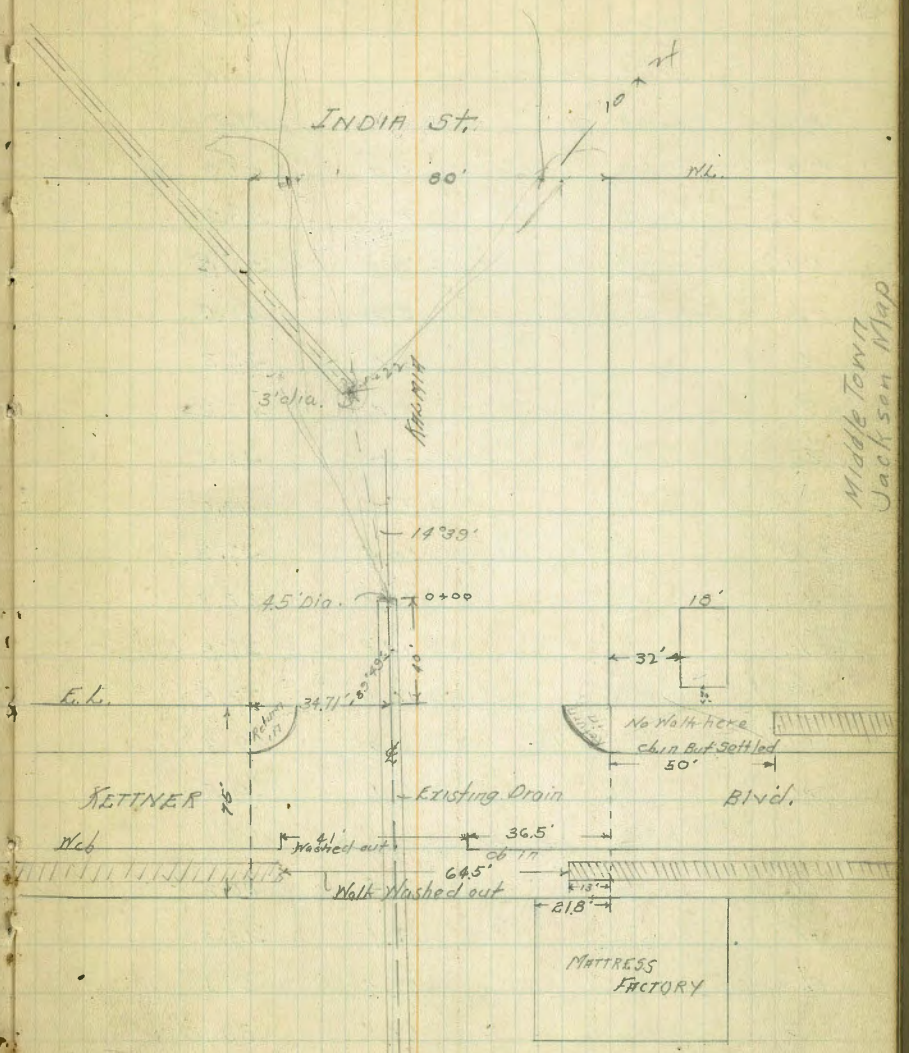 INDIA St.
80'
W.L.
Middle Town
Jackson Map
3' dia.
KALMIA
14°39'
4.5' Dia.
0+00
40'
18'
32'
E.L.
34.71'
Return
in
Return
in
No Walk here
cb in But Settled
50'
75'
KETTNER
Existing Drain
Blvd.
Wcb
41'
Washed out
36.5'
cb in
64.5'
Walk Washed out
13'
21.8'
MATTRESS
FACTORY